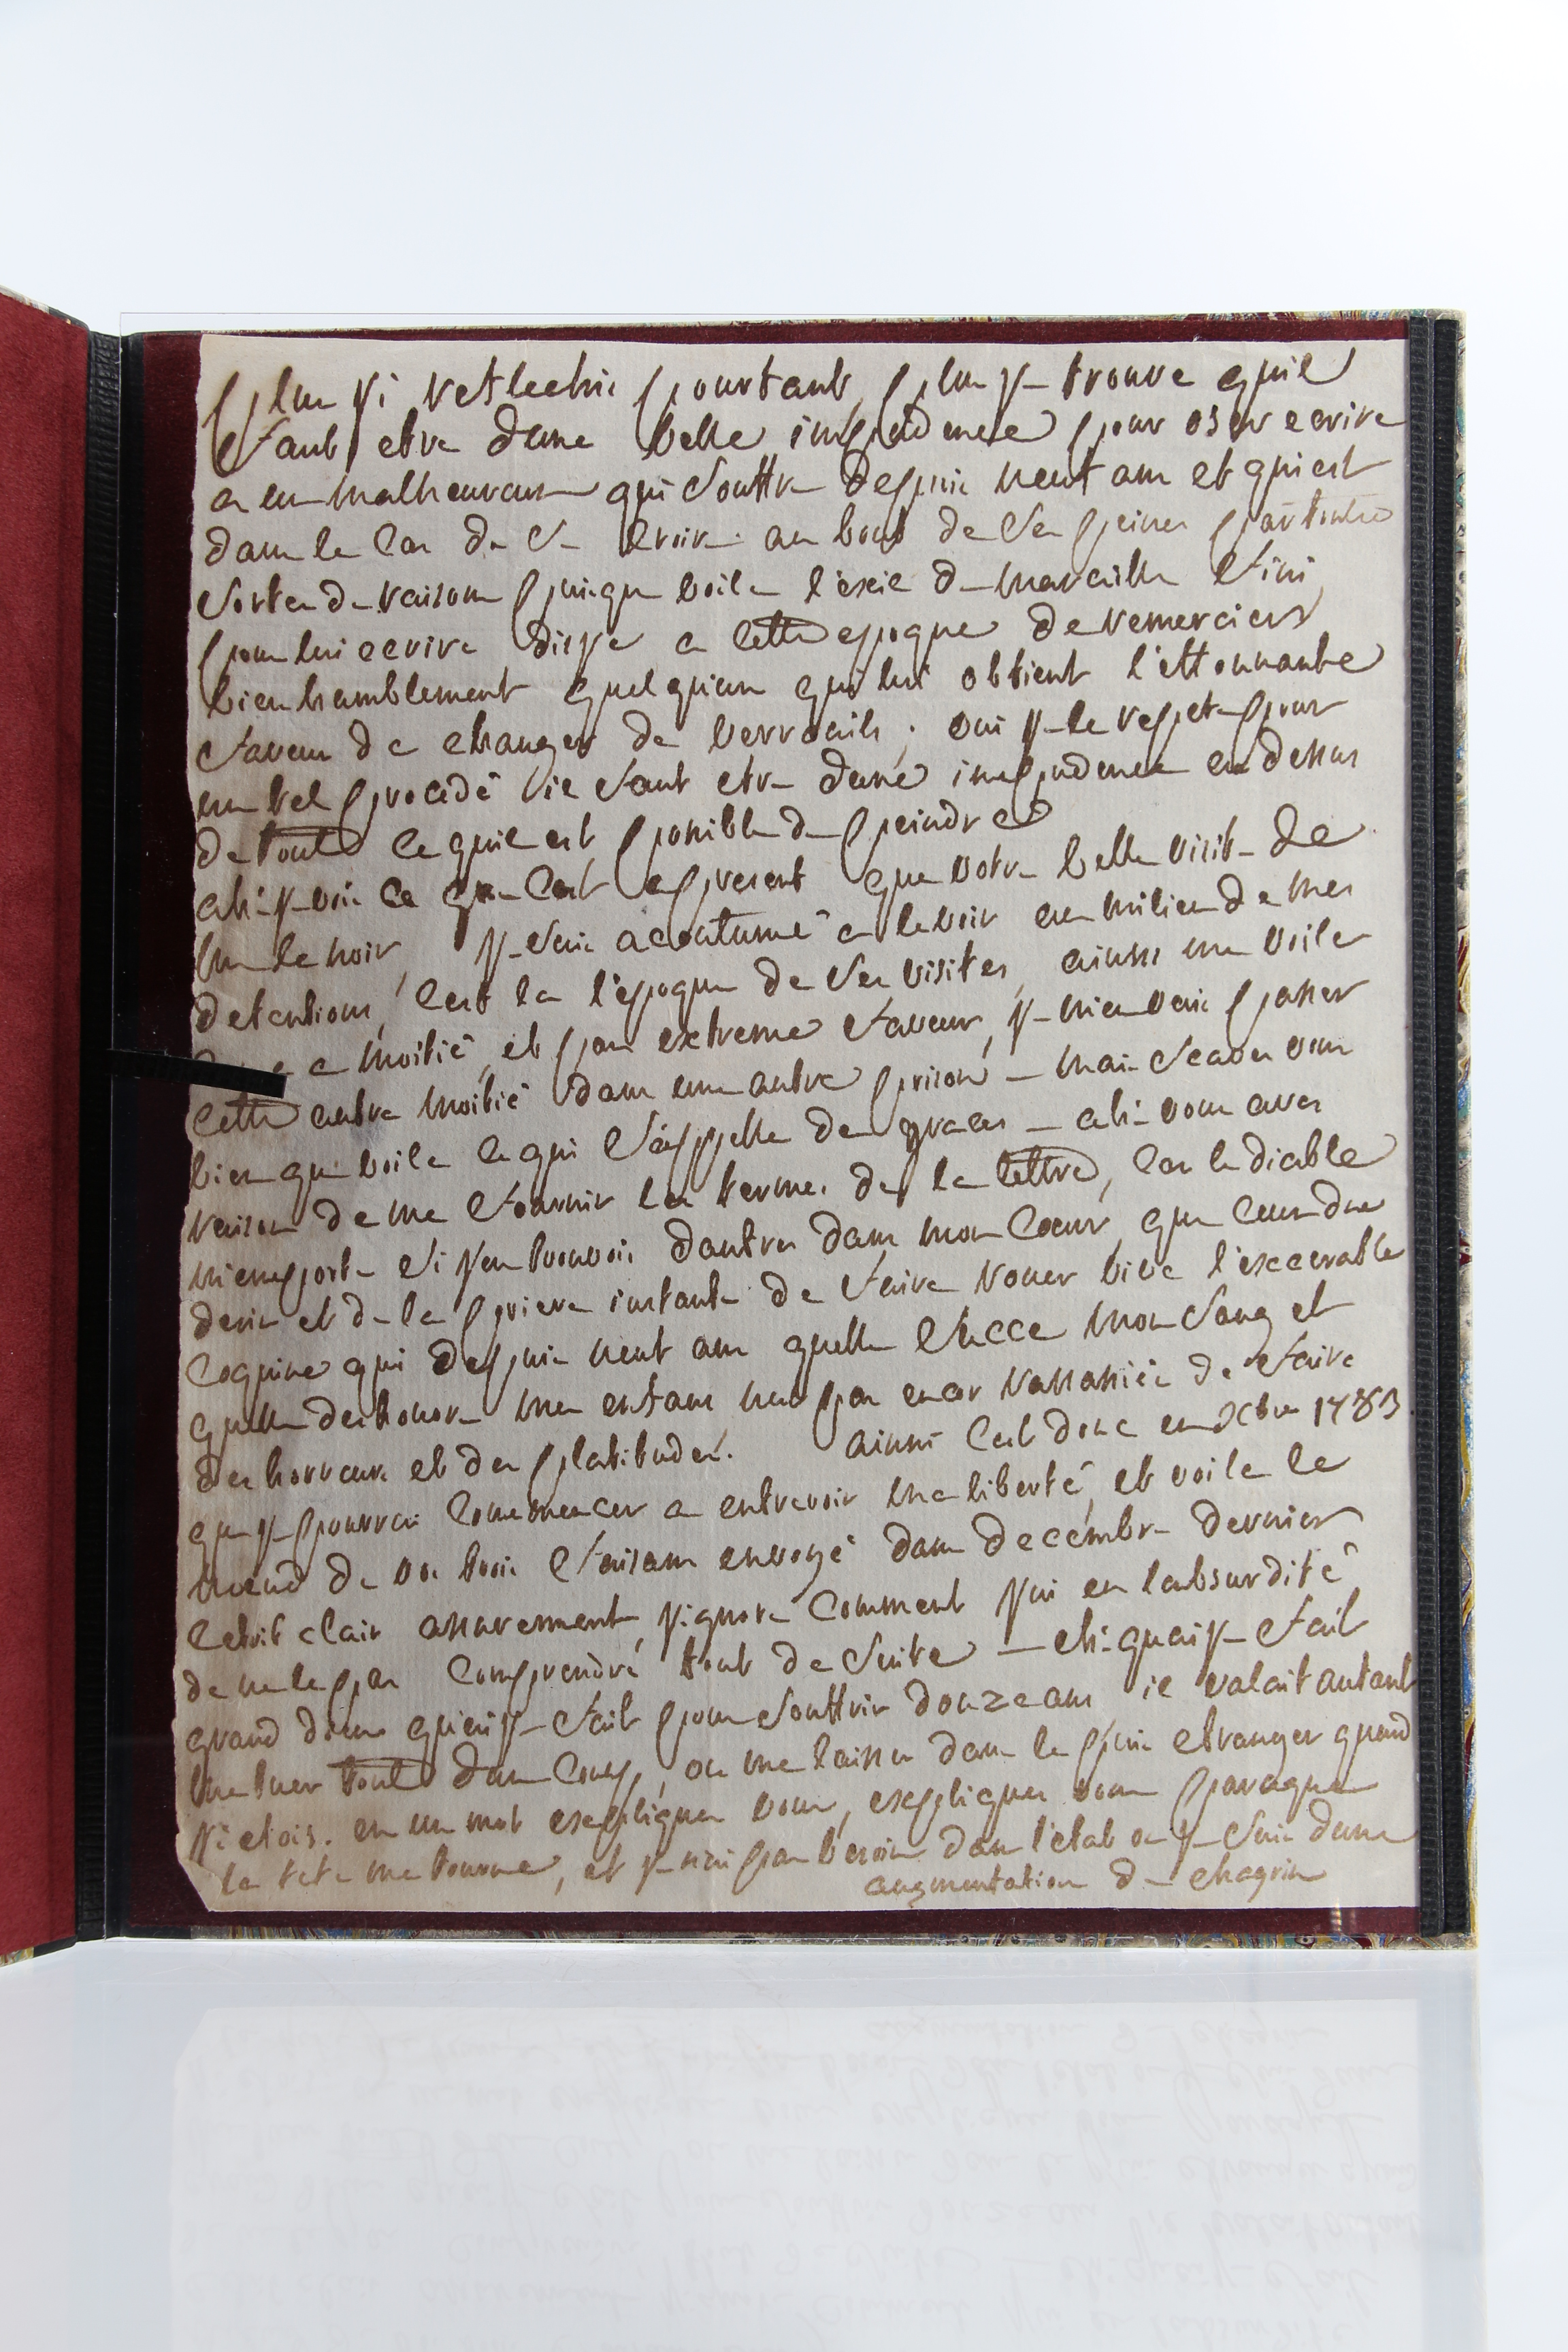 plus j'i reflechis pourtant, plus je trouve quil
faut etre dune belle impudence pour oser ecrire
a un malheureux qui souffre depuis neuf ans et qui est
dans le cas de se croire au bout de ses peines par toutes
sortes de raisons puisque voila l'exil de marseille fini,
pour lui ecrire disje a cette epoque de remercier
bien humblement quelquun qui lui obtient l'ettonnante
faveur de changer de verrouils; oui je le repete pour
un tel procedé il faut etre dune impudence au dessus
de toute ce quil est possible de peindre
ah! je vois ce que cest apresent que votre belle visite de
le noir, je suis acoutumé a le voir au milieu de mes
detentions, cest la l'epoque de ses visites, ainsi me voila
a moitié, et par extreme faveur, je m'en vais passer
cette autre moitié dans une autre prison — mais scavez vous
bien que voila ce qui s'appelle des graces — ah! vous avez
raison de me fournir les termes de la lettre, car le diable
m'emporte si j'en trouvois dautres dans mon coeur, que ceux du
desir et de la priere instante de faire rouer vive l'execrable
coquine qui depuis neuf ans quelle succe mon sang et
quelle deshonore mes enfans nest pas encor rassasiée de faire
des horreurs et des platitudes. ainsi cest donc en xbre 1783
que je pourrai commencer a entrevoir ma liberté, et voila le
nœud de vos trois faisans envoyé dans decembre dernier
cetoit clair assurement, j'ignore comment j'ai eu labsurdité
de ne le pas comprendre tout de suite — eh! quai je fait
grand dieu quai je fait pour souffrir douze ans il valait autant
me tuer tout dun coup, ou me laisser dans le pais etranger quand
j'i etois. en un mot expliquez vous, expliquez vous parceque
la tete me tourne, et je nai pas besoin dans l'etat ou je suis dune
augmentation de chagrin